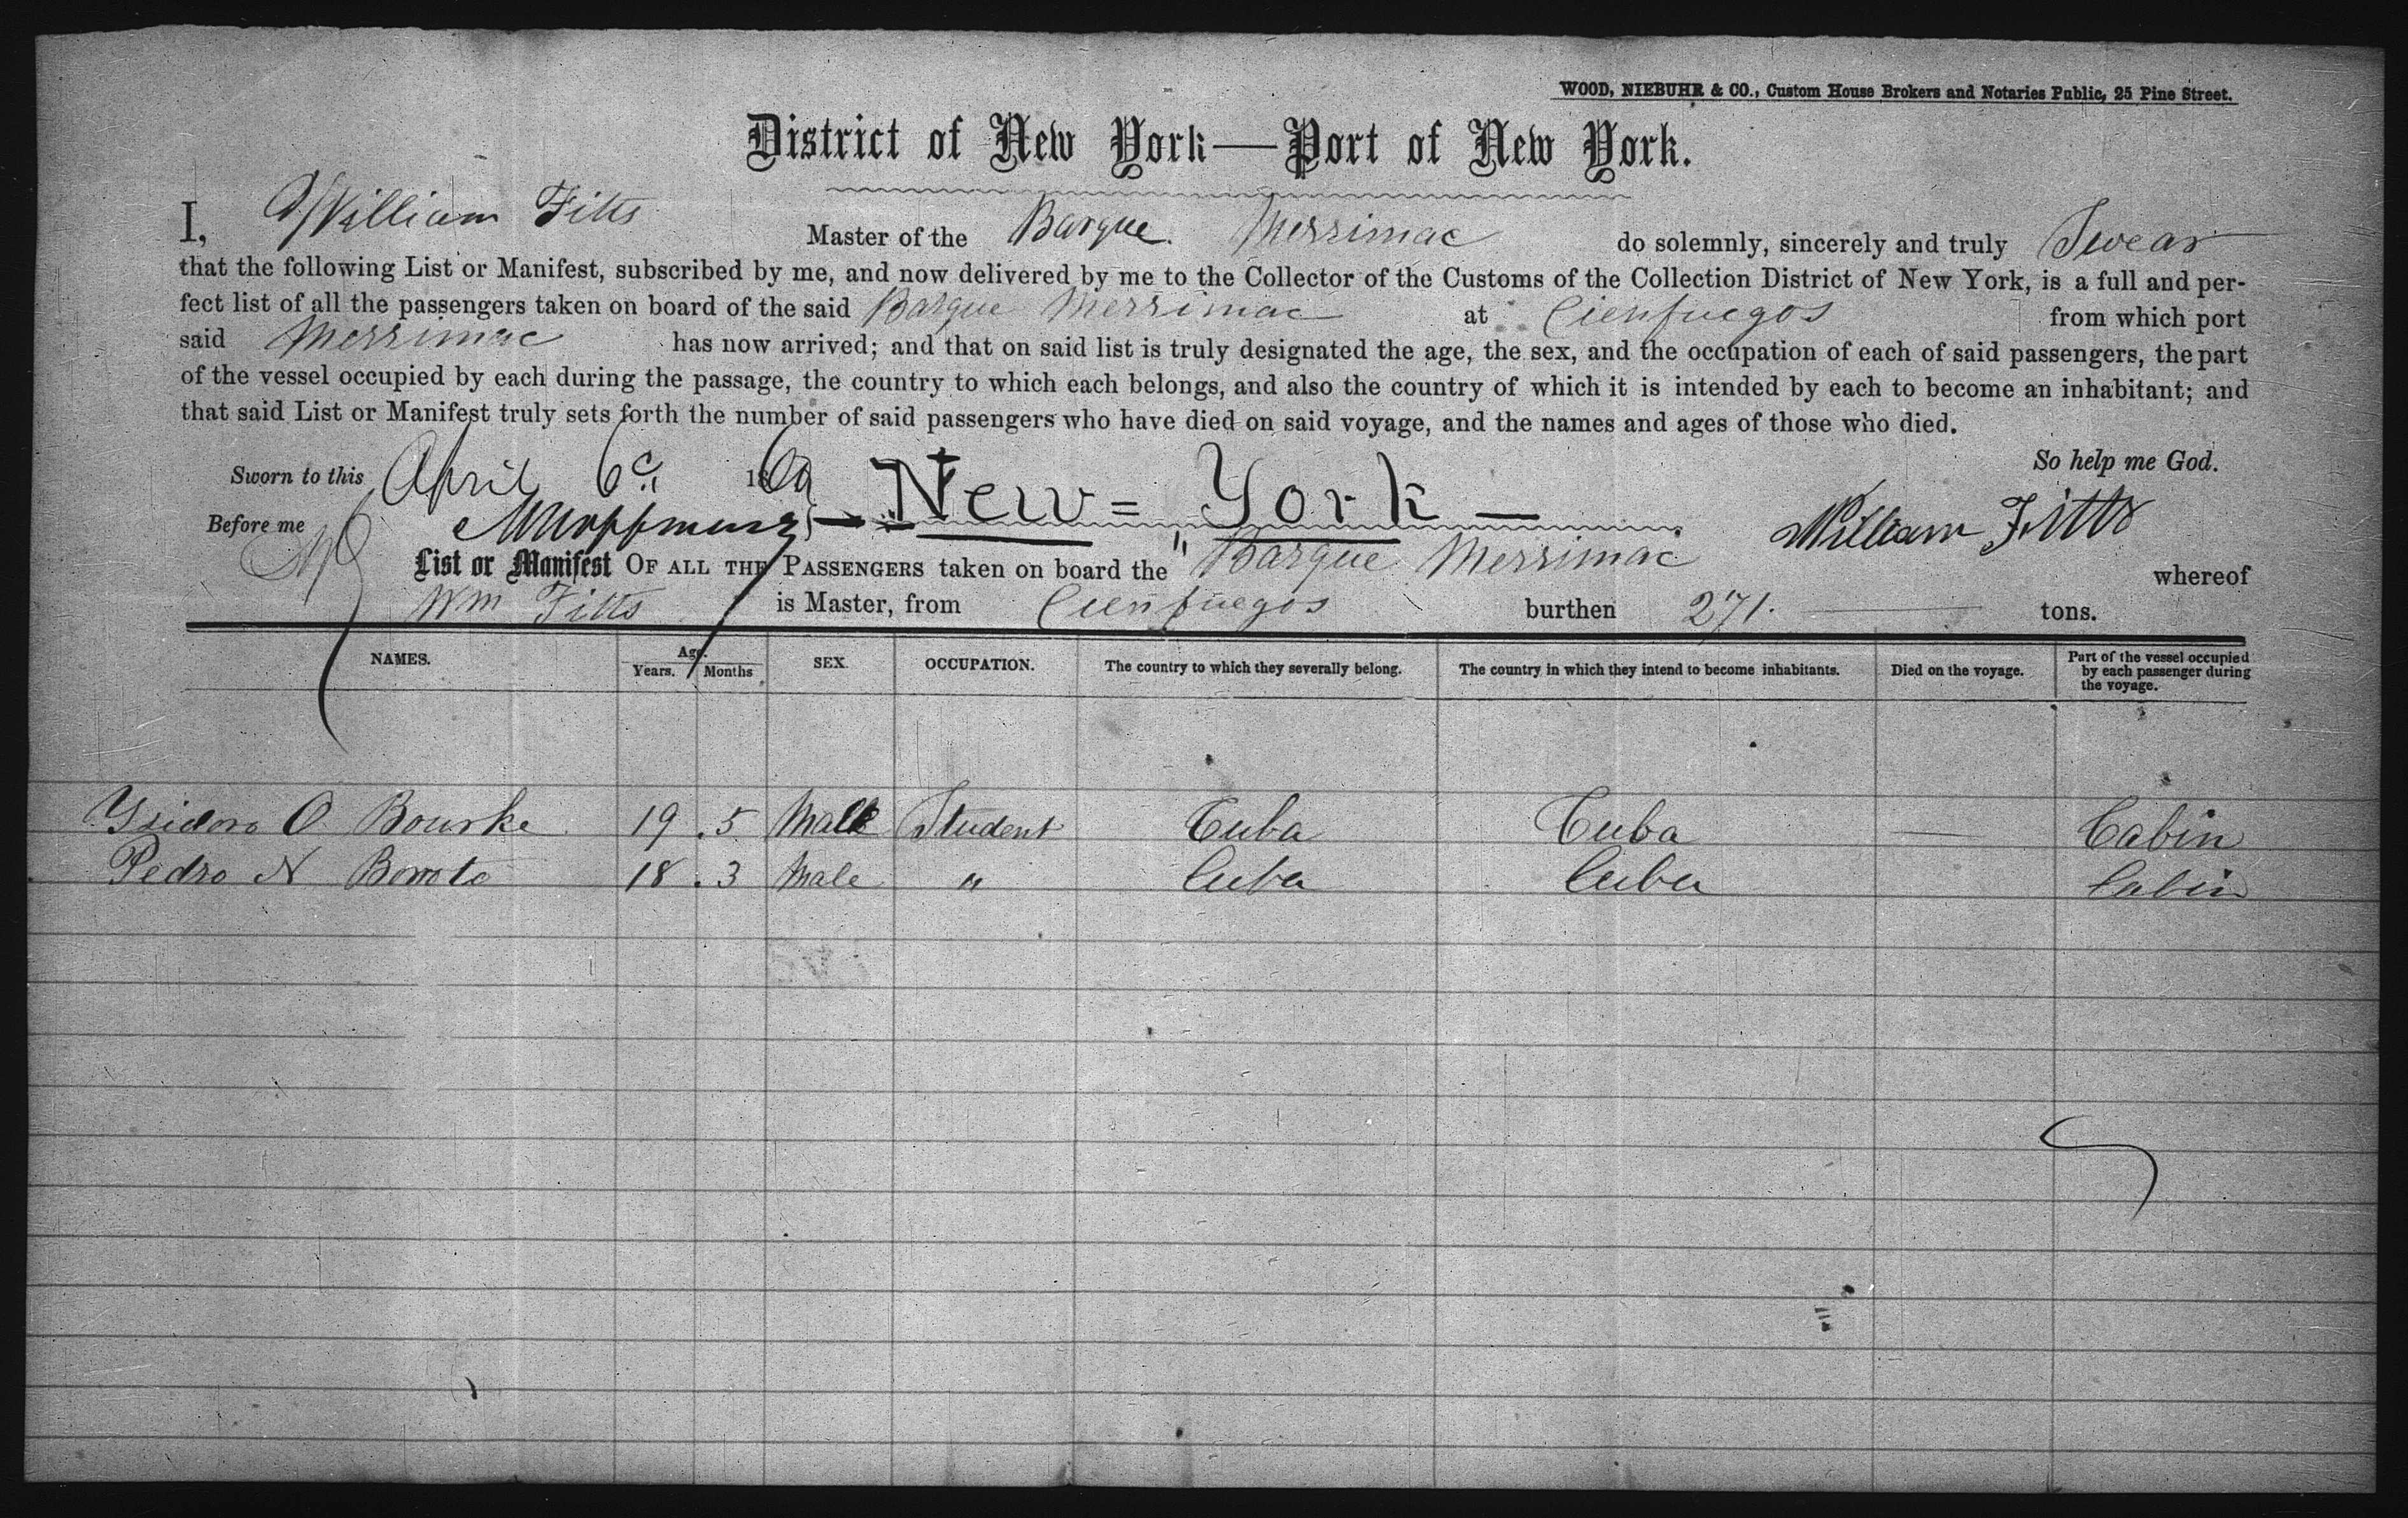 WOOD, NIEBUHR & CO., Custom House Brokers and Notaries Public, 25 Pine Street.
District of New York—Port of New York.
I, William Fitts Master of the Barque Merrimac do solemnly, sincerely and truly Swear
that the following List or Manifest, subscribed by me, and now delivered by me to the Collector of the Customs of the Collection District of New York, is a full and per-
fect list of all the passengers taken on board of the said Barque Merrimac at Cienfuegos from which port
said Merrimac has now arrived; and that on said list is truly designated the age, the sex, and the occupation of each of said passengers, the part
of the vessel occupied by each during the passage, the country to which each belongs, and also the country of which it is intended by each to become an inhabitant; and
that said List or Manifest truly sets forth the number of said passengers who have died on said voyage, and the names and ages of those who died.
So help me God.
Sworn to this April 6 18
New = York —
Before me
William Fitts
List or Manifest OF ALL THE PASSENGERS taken on board the Barque Merrimac whereof
Wm Fitts is Master, from Cienfuegos burthen 271. tons.
NAMES. Age. Years. Months SEX. OCCUPATION. The country to which they severally belong. The country in which they intend to become inhabitants. Died on the voyage. Part of the vessel occupied by each passenger during the voyage.
Ysidoro O Bourke 19 . 5 Male Student Cuba Cuba — Cabin
Pedro N 18 . 3 Male " Cuba Cuba Cabin